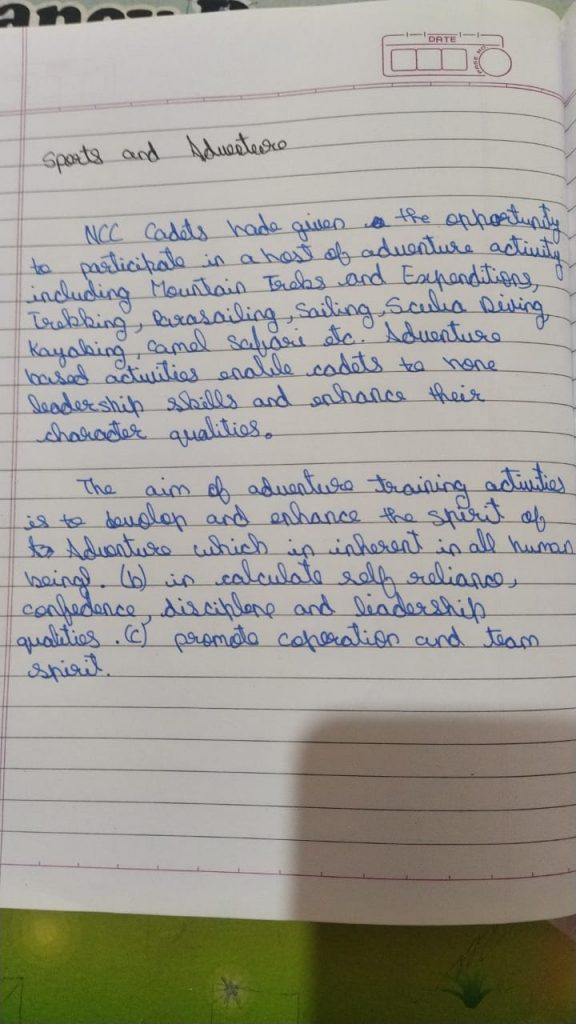 DATE
PAGE NO.
Sports and Adventure
NCC Cadets hade given the opportunity
to participate in a host of adventure activity
including Mountain Treks and Expenditions,
Trekking, Parasailing, Sailing, Scuba Diving,
Kayaking, Camel Safari etc. Adventure
based activities enable cadets to hone
leadership skills and enhance their
character qualities.
The aim of adventure training activities
is to devolop and enhance the spirit of
Adventure which in inherent in all human
being. (b) in calculate self reliance,
confedence, disciplene and leadership
qualities. (c) promote coperation and team
spirit.